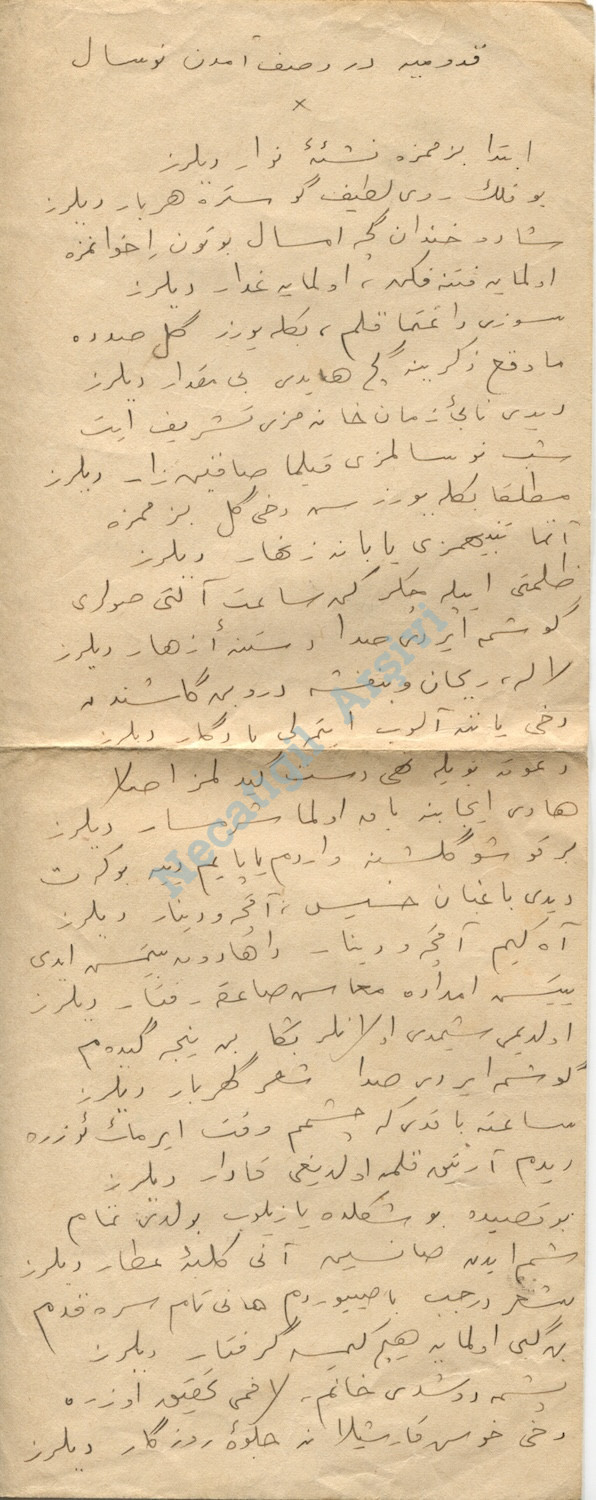 قدومیه در وصف آمدن نوسال
×
ابتدا بزمزه نشئهٔ نوار دیلرز
بو فلك روی لطیف گوستره هر بار دیلرز
شاد و خندان گچه امسال بوتون اخوانمزه
اولمایه فتنه فکن، اولمایه غدار دیلرز
سوزی داغتما قلم، بکله‌یورز گل صدده
مادحڭ ذکرینه گچ هایدی بی مقدار دیلرز
دیدی نابئ زمان خانه‌مزی تشریف ایت
شب نوسالمزی قیلما صاقین زار دیلرز
مطلقا بکله‌یورز سن دخی گل بزمزه
آتما تنبیهمزی یابانه زنهار دیلرز
ظلمتی ایله چکرکن ساعت آلتی صولری
گوشمه ایردی صدا دستهٔ ازهار دیلرز
لاله، ریحان و بنفشه درو بن گلشندن
دخی یاننه آلوب ایتمه‌لی یادگار دیلرز
دعوته بویله تهی دست گیدلمز اصلا
هادی ایجابنه باق اولما شرمسار دیلرز
بر قوشو گلشنه واردم یاپایم دیه بوکت
دیدی باغبان خسیس، آقچه و دینار دیلرز
آه کیم آقچه و دینار داها دون بیتمش ایدی
یتیش امداده معاش صاعقه رفتار دیلرز
اولدیمی شیمدی اولانلر بڭا بن نیجه گیده‌م
گوشمه ایردی صدا شعر گهربار دیلرز
ساعته باقدی که چشمم وقت ایرمك ئوزره
دیدم آرتیق قلمه اولدیغی قادار دیلرز
بو قصیده بو شکلده یازیلوب بولدی تمام
شم ایدن صانسین آنی کلبهٔ عطار دیلرز
باصییوردم هانی تام سره قدم
بن گبی اولمایه هیچ کیمسه گرفتار دیلرز
پشمه دوشدی خانم، لافمی تحقیق اوزره
دخی خوش قارشیلانه جلوهٔ روزگار دیلرز
Necatigil Arşivi